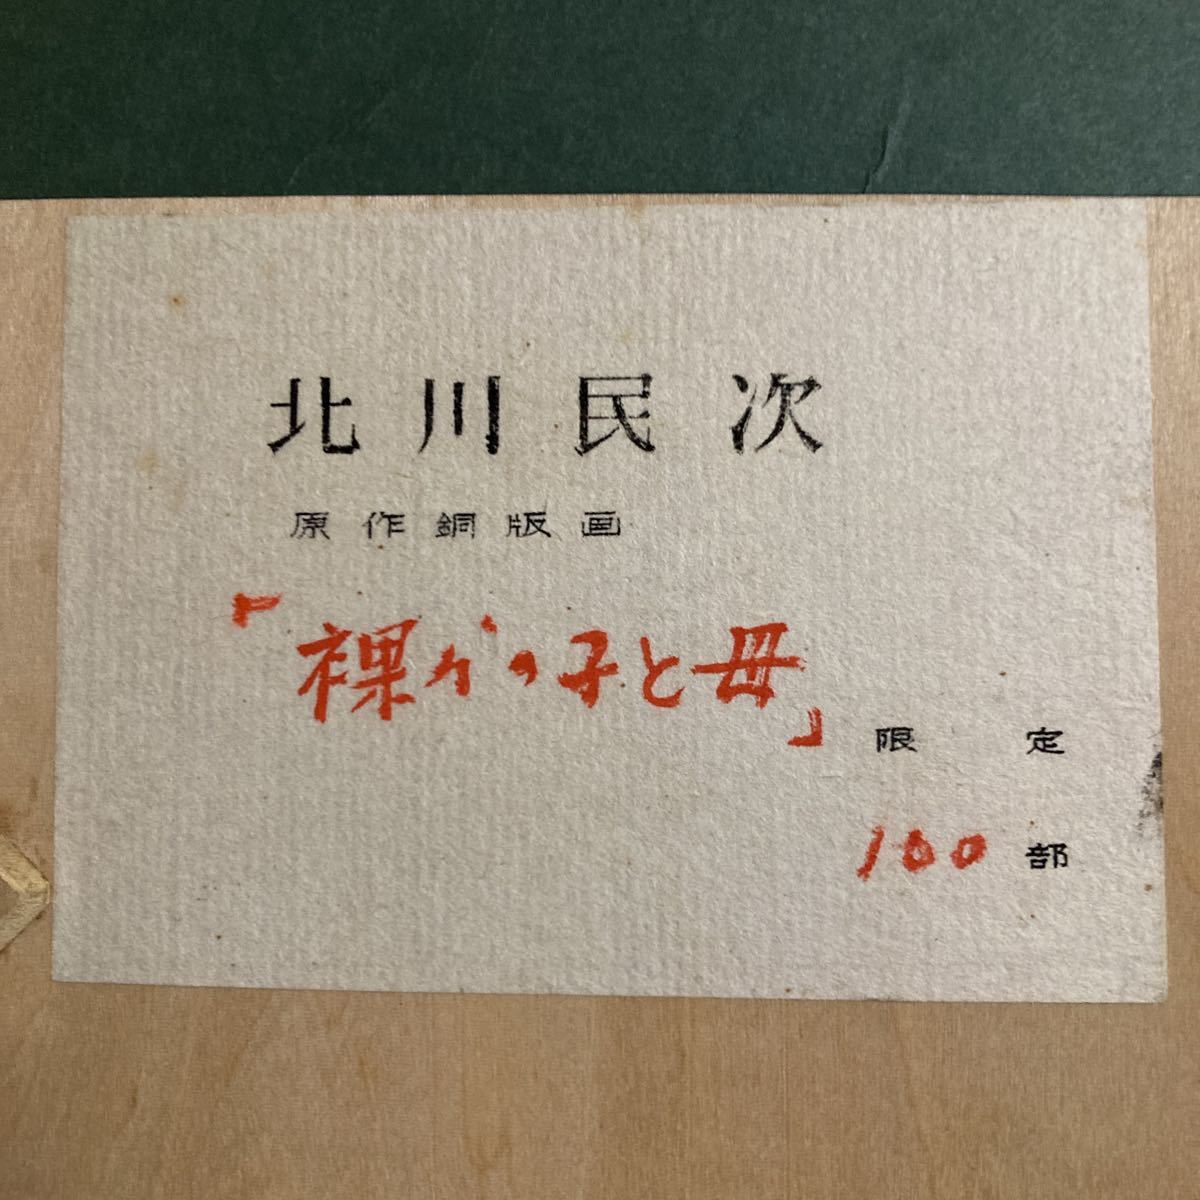 北川民次
原作銅版画
「裸がの子と母」
限定
100部